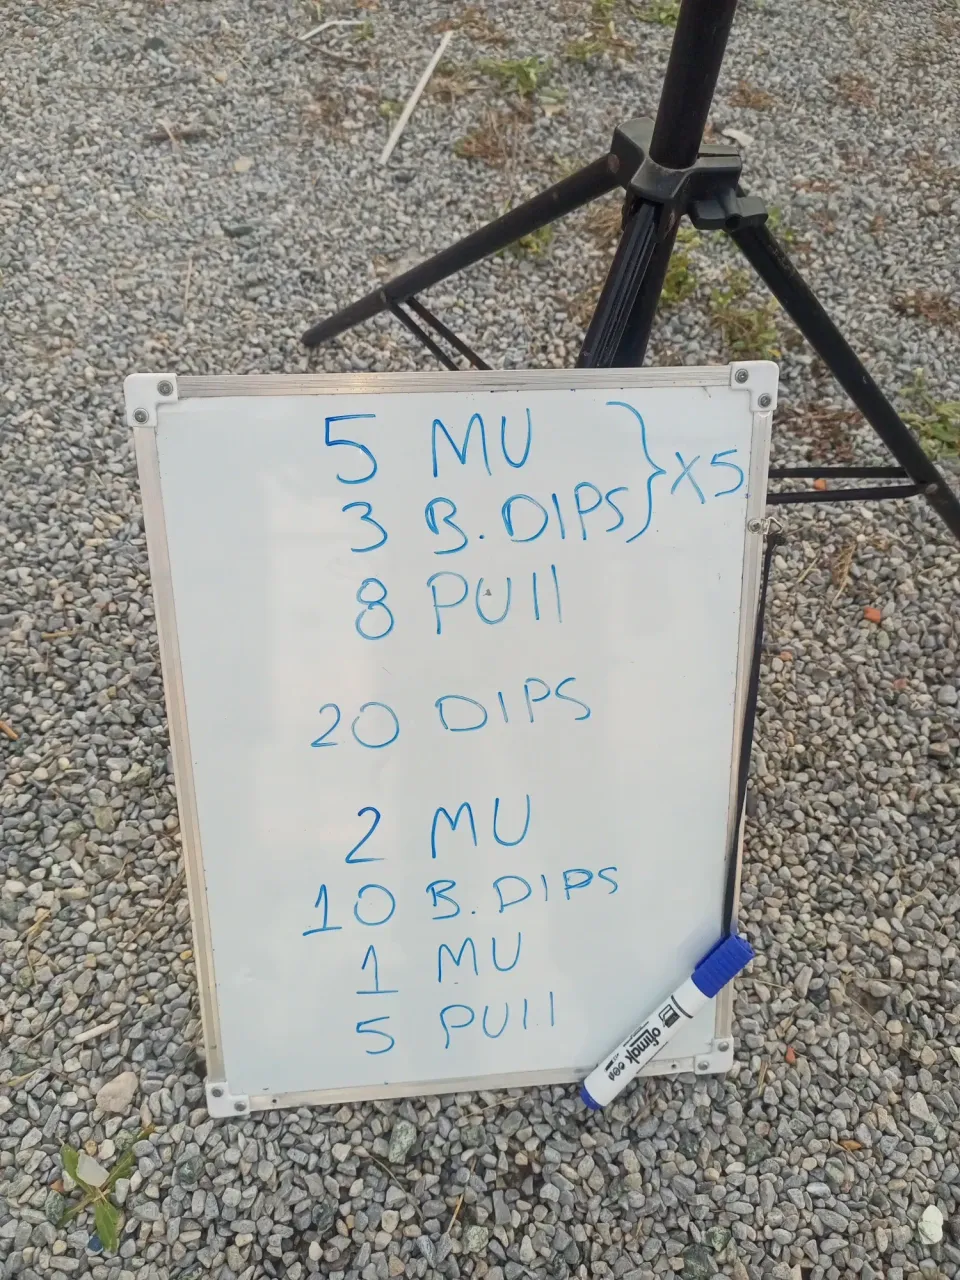 5 MU
3 B.DIPS } X5
8 PUll
20 DIPS
2 MU
10 B.DIPS
1 MU
5 PUll
ofimak